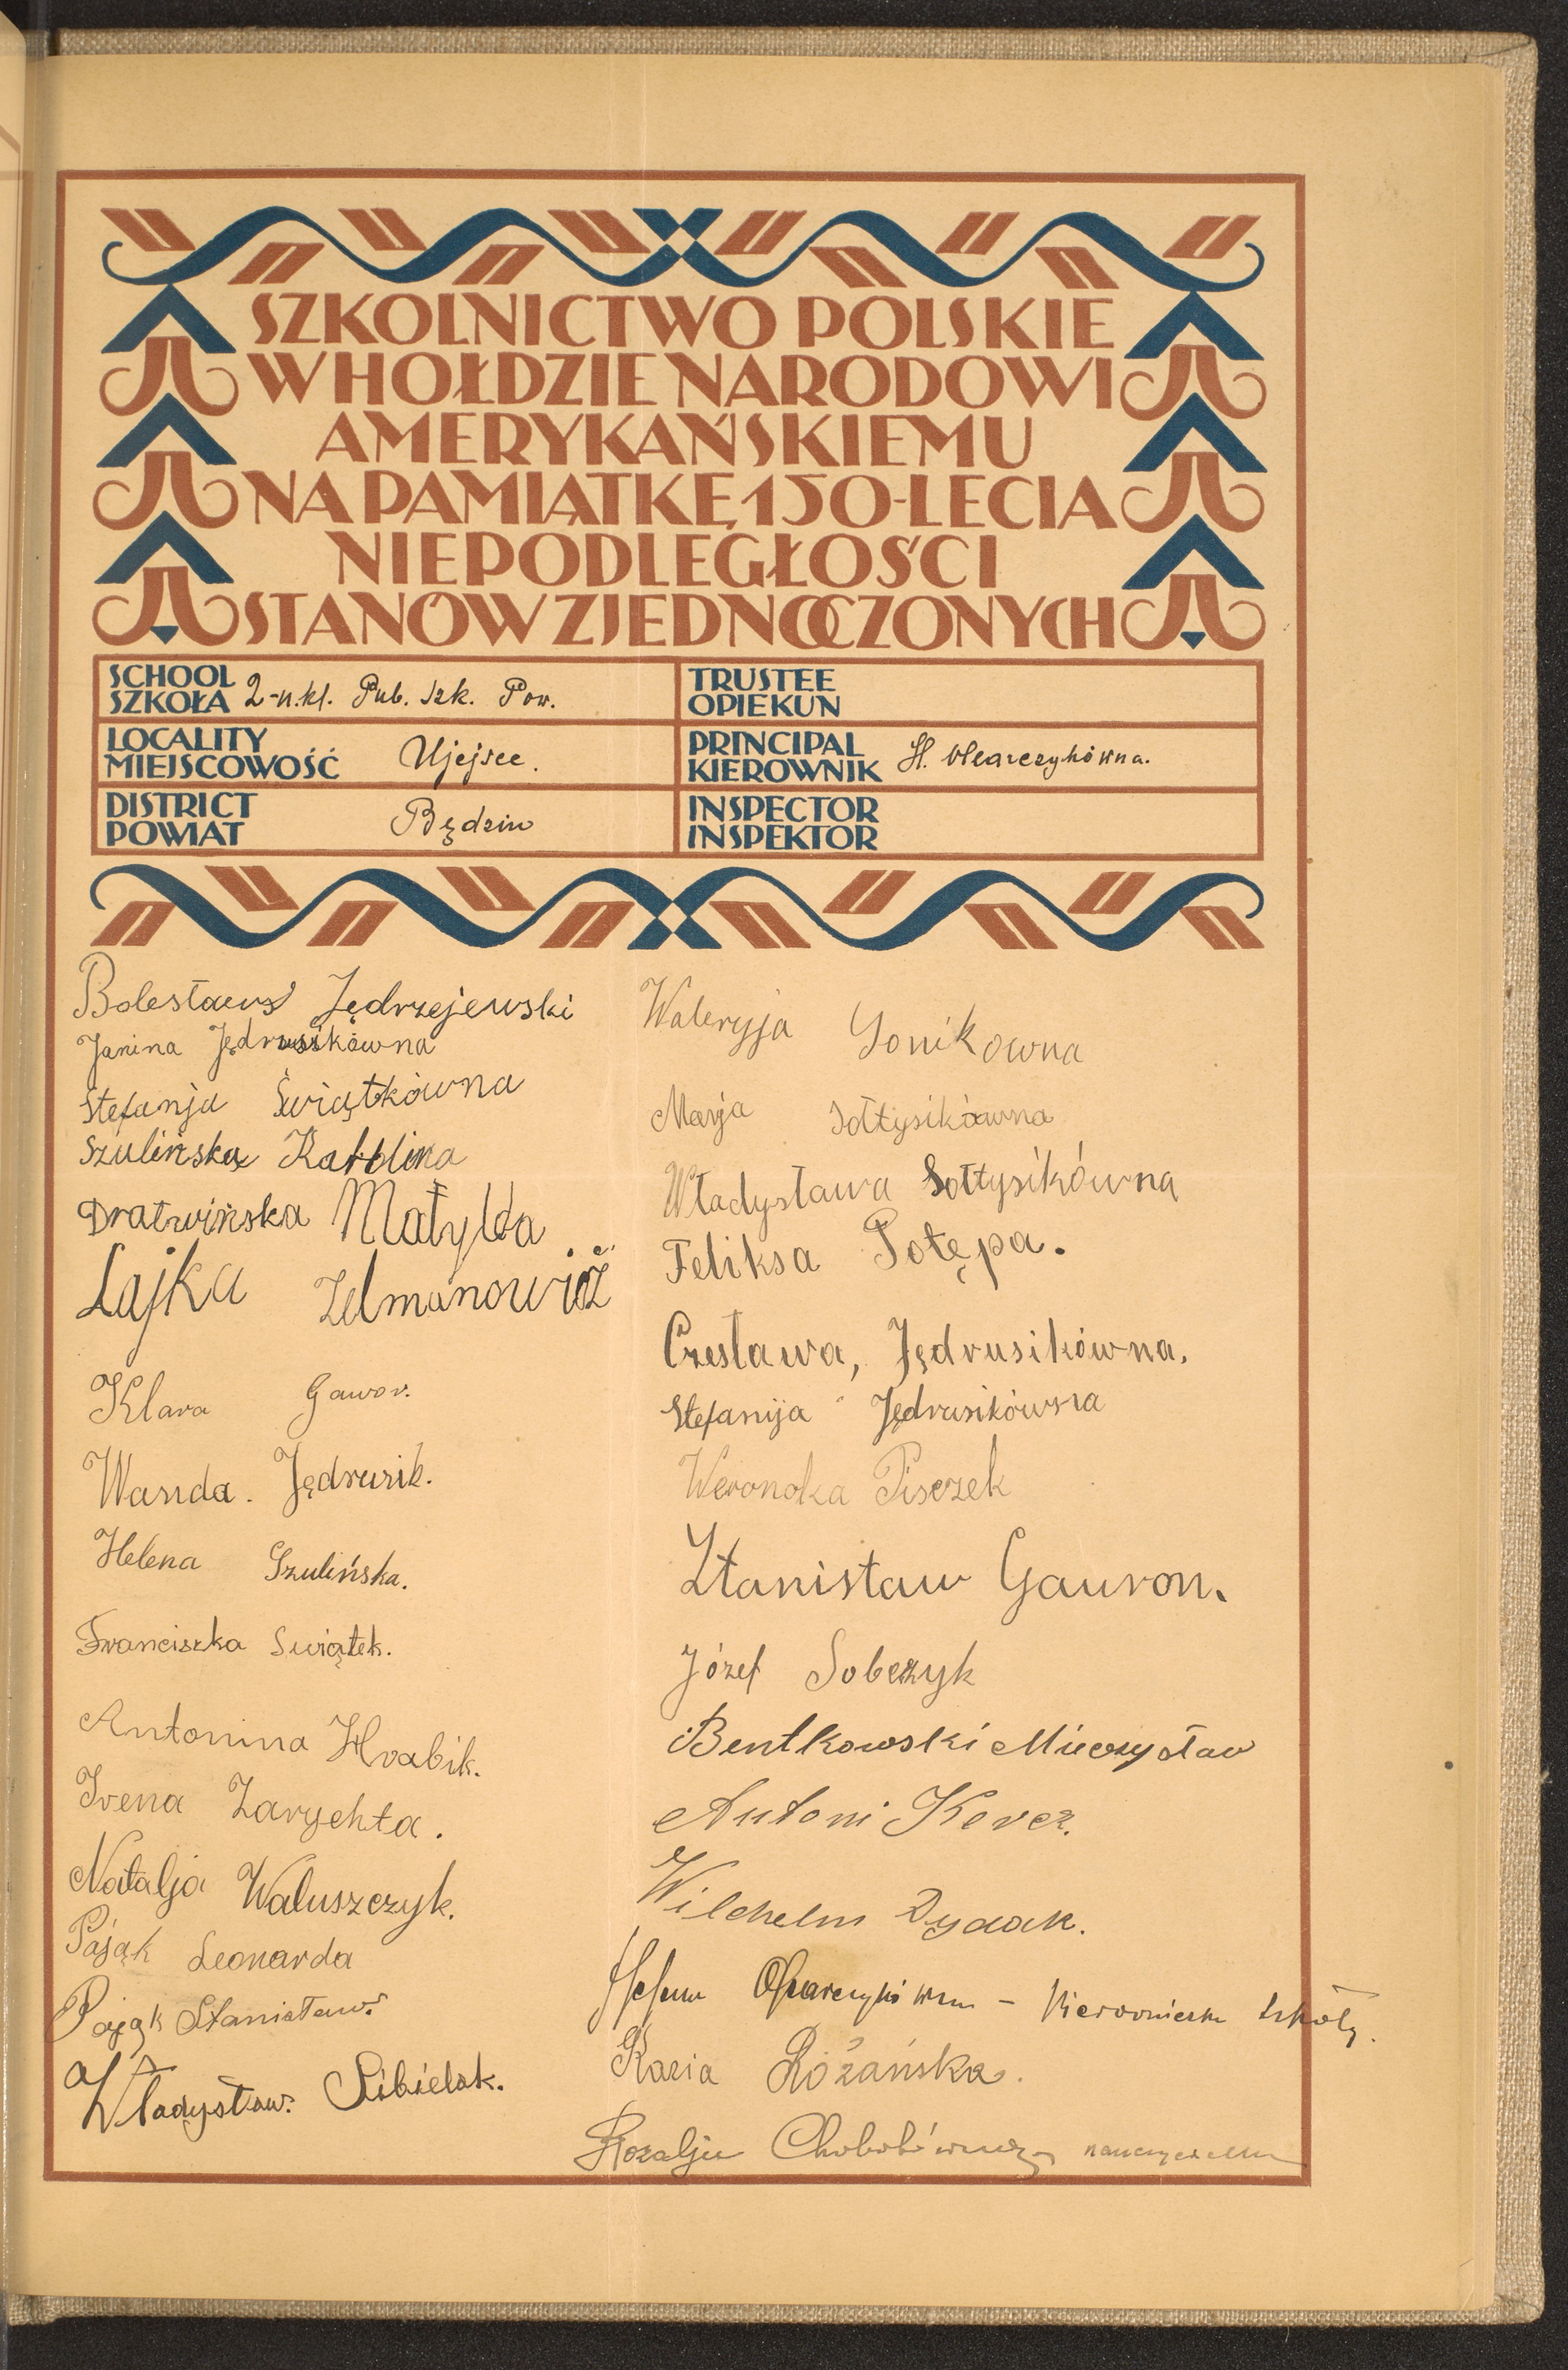 SZKOLNICTWO POLSKIE
W HOŁDZIE NARODOWI
AMERYKAŃSKIEMU
NA PAMIĄTKĘ 150-LECIA
NIEPODLEGŁOŚCI
STANÓW ZJEDNOCZONYCH
SCHOOL
SZKOŁA 2-u.kl. Pub. szk. Pow.
TRUSTEE
OPIEKUN
LOCALITY
MIEJSCOWOŚĆ Ujejsce.
PRINCIPAL
KIEROWNIK H. Olearczykówna.
DISTRICT
POWIAT Będzin
INSPECTOR
INSPEKTOR
Bolesław Jędrzejewski
Janina Jędrusikówna
Stefanja Świątkówna
Szulińska Karolina
Dratwińska Matylda
Łajka Zelmanowicz
Klara Gawor.
Wanda. Jędrusik.
Helena Szulińska.
Franciszka Swiątek.
Antonina Hrabik.
Irena Zarychta.
Natalja Waluszczyk.
Pająk Leonarda
Pająk Stanisław
Władysław. Sibielak.
Waleryja Sonikowna
Marja Sołtysikówna
Władysława Sołtysikówna
Feliksa Potępa.
Czesława, Jędrusikówna.
Stefanija Jędrusikówna
Weronoka Pisczek
Stanisław Gawron.
Józef Sobczyk
Bentkowski Mieczysław
Antoni Kercz.
Wilchelm Dydak.
Helena Olearczykówna – kierowniczka szkoły.
Kazia Różańska.
Rozalja Chobotówna, nauczycielka